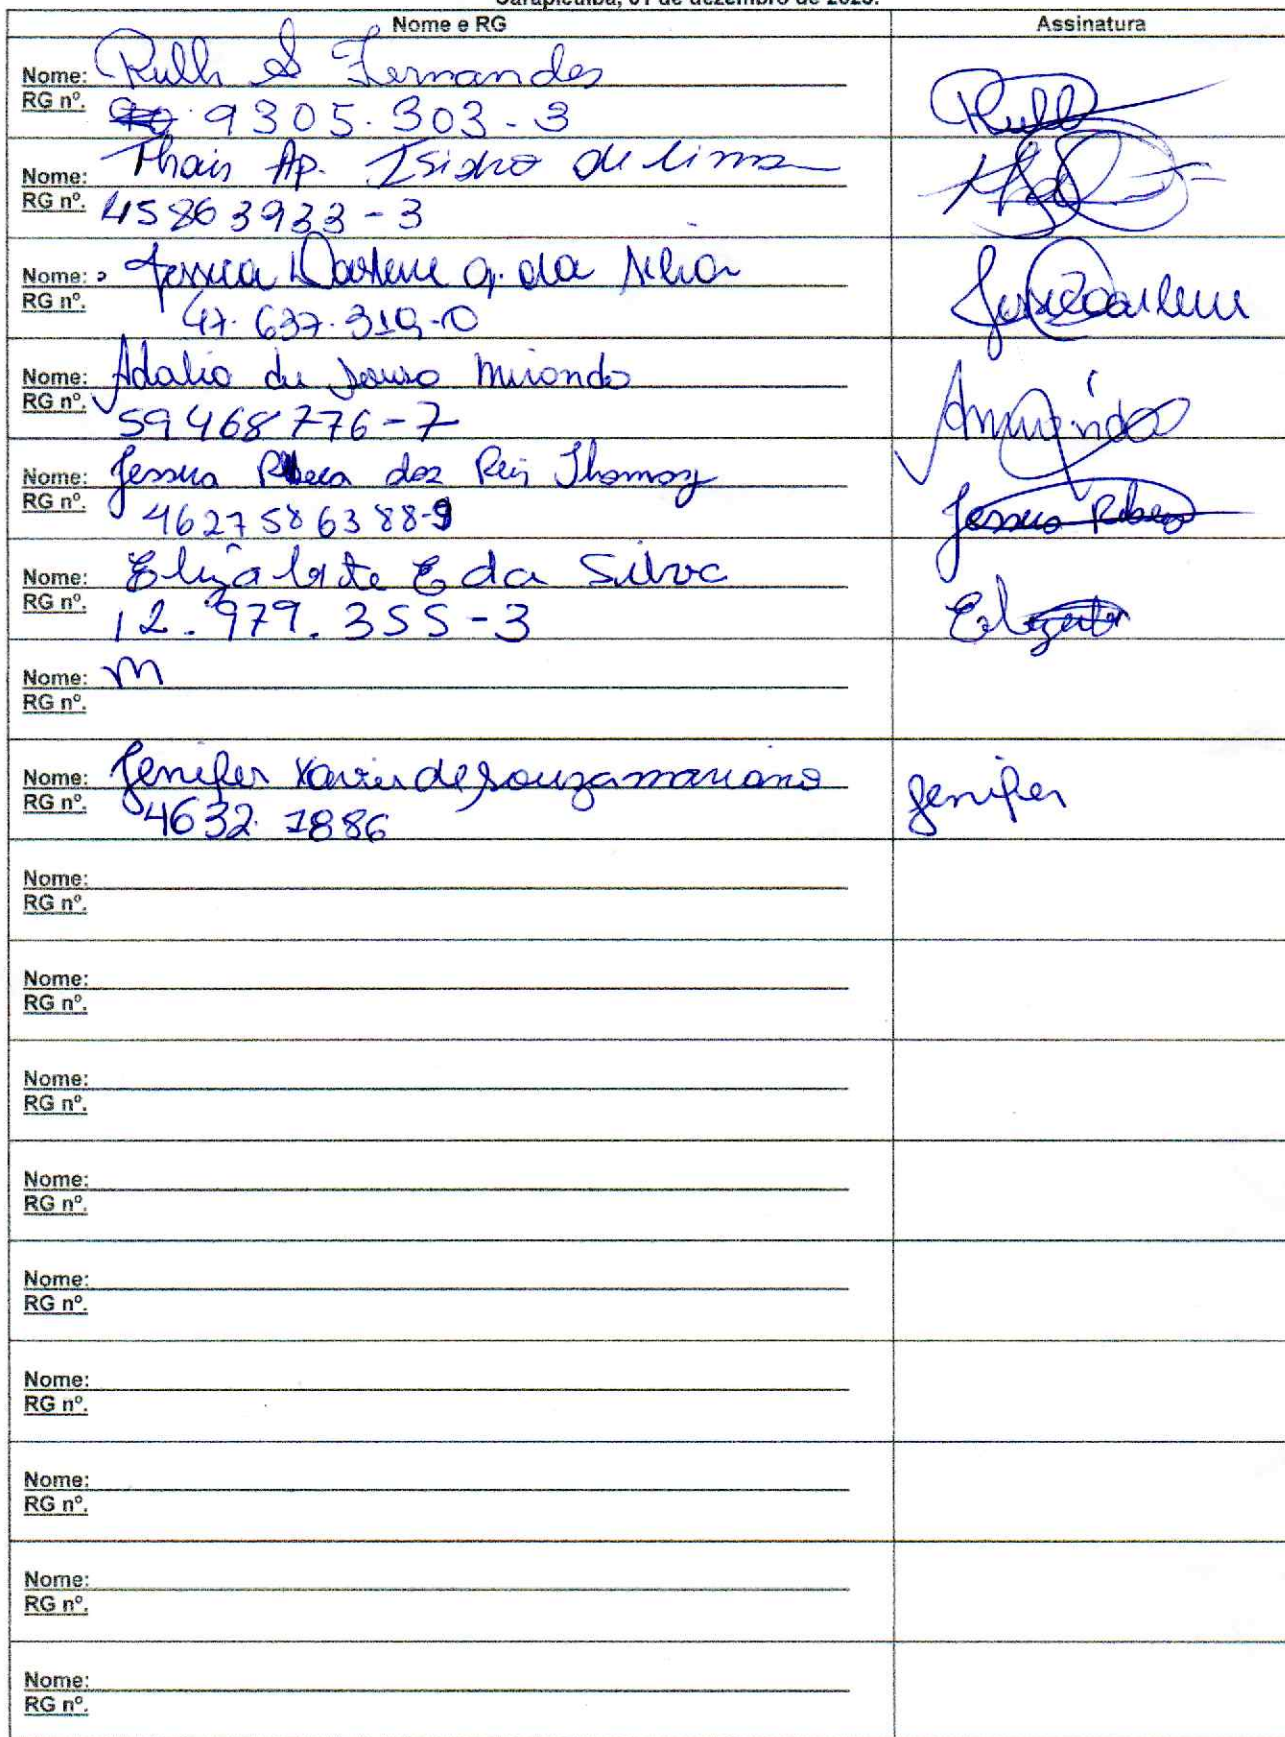 Carapicuíba, 01 de dezembro de 2023.
Nome e RG Assinatura
Nome: Ruth S Fernandes
RG nº. 9305.303-3 Ruth
Nome: Thais Ap. Isidro de lima
RG nº. 45863933-3
Nome: Jessica Darlene G. da Silva
RG nº. 47.637.319-0 Jessica Darlene
Nome: Adalio de Souza Miranda
RG nº. 59468776-7
Nome: Jessica Rebeca dos Reis Thomaz
RG nº. 46275863 88-9 Jessica Rebeca
Nome: Elizabete E da Silva
RG nº. 12.979.355-3 Elizabete
Nome: m
RG nº.
Nome: Jenifer Xavier de Souza mariano
RG nº. 4632.1886 Jenifer
Nome:
RG nº.
Nome:
RG nº.
Nome:
RG nº.
Nome:
RG nº.
Nome:
RG nº.
Nome:
RG nº.
Nome:
RG nº.
Nome:
RG nº.
Nome:
RG nº.